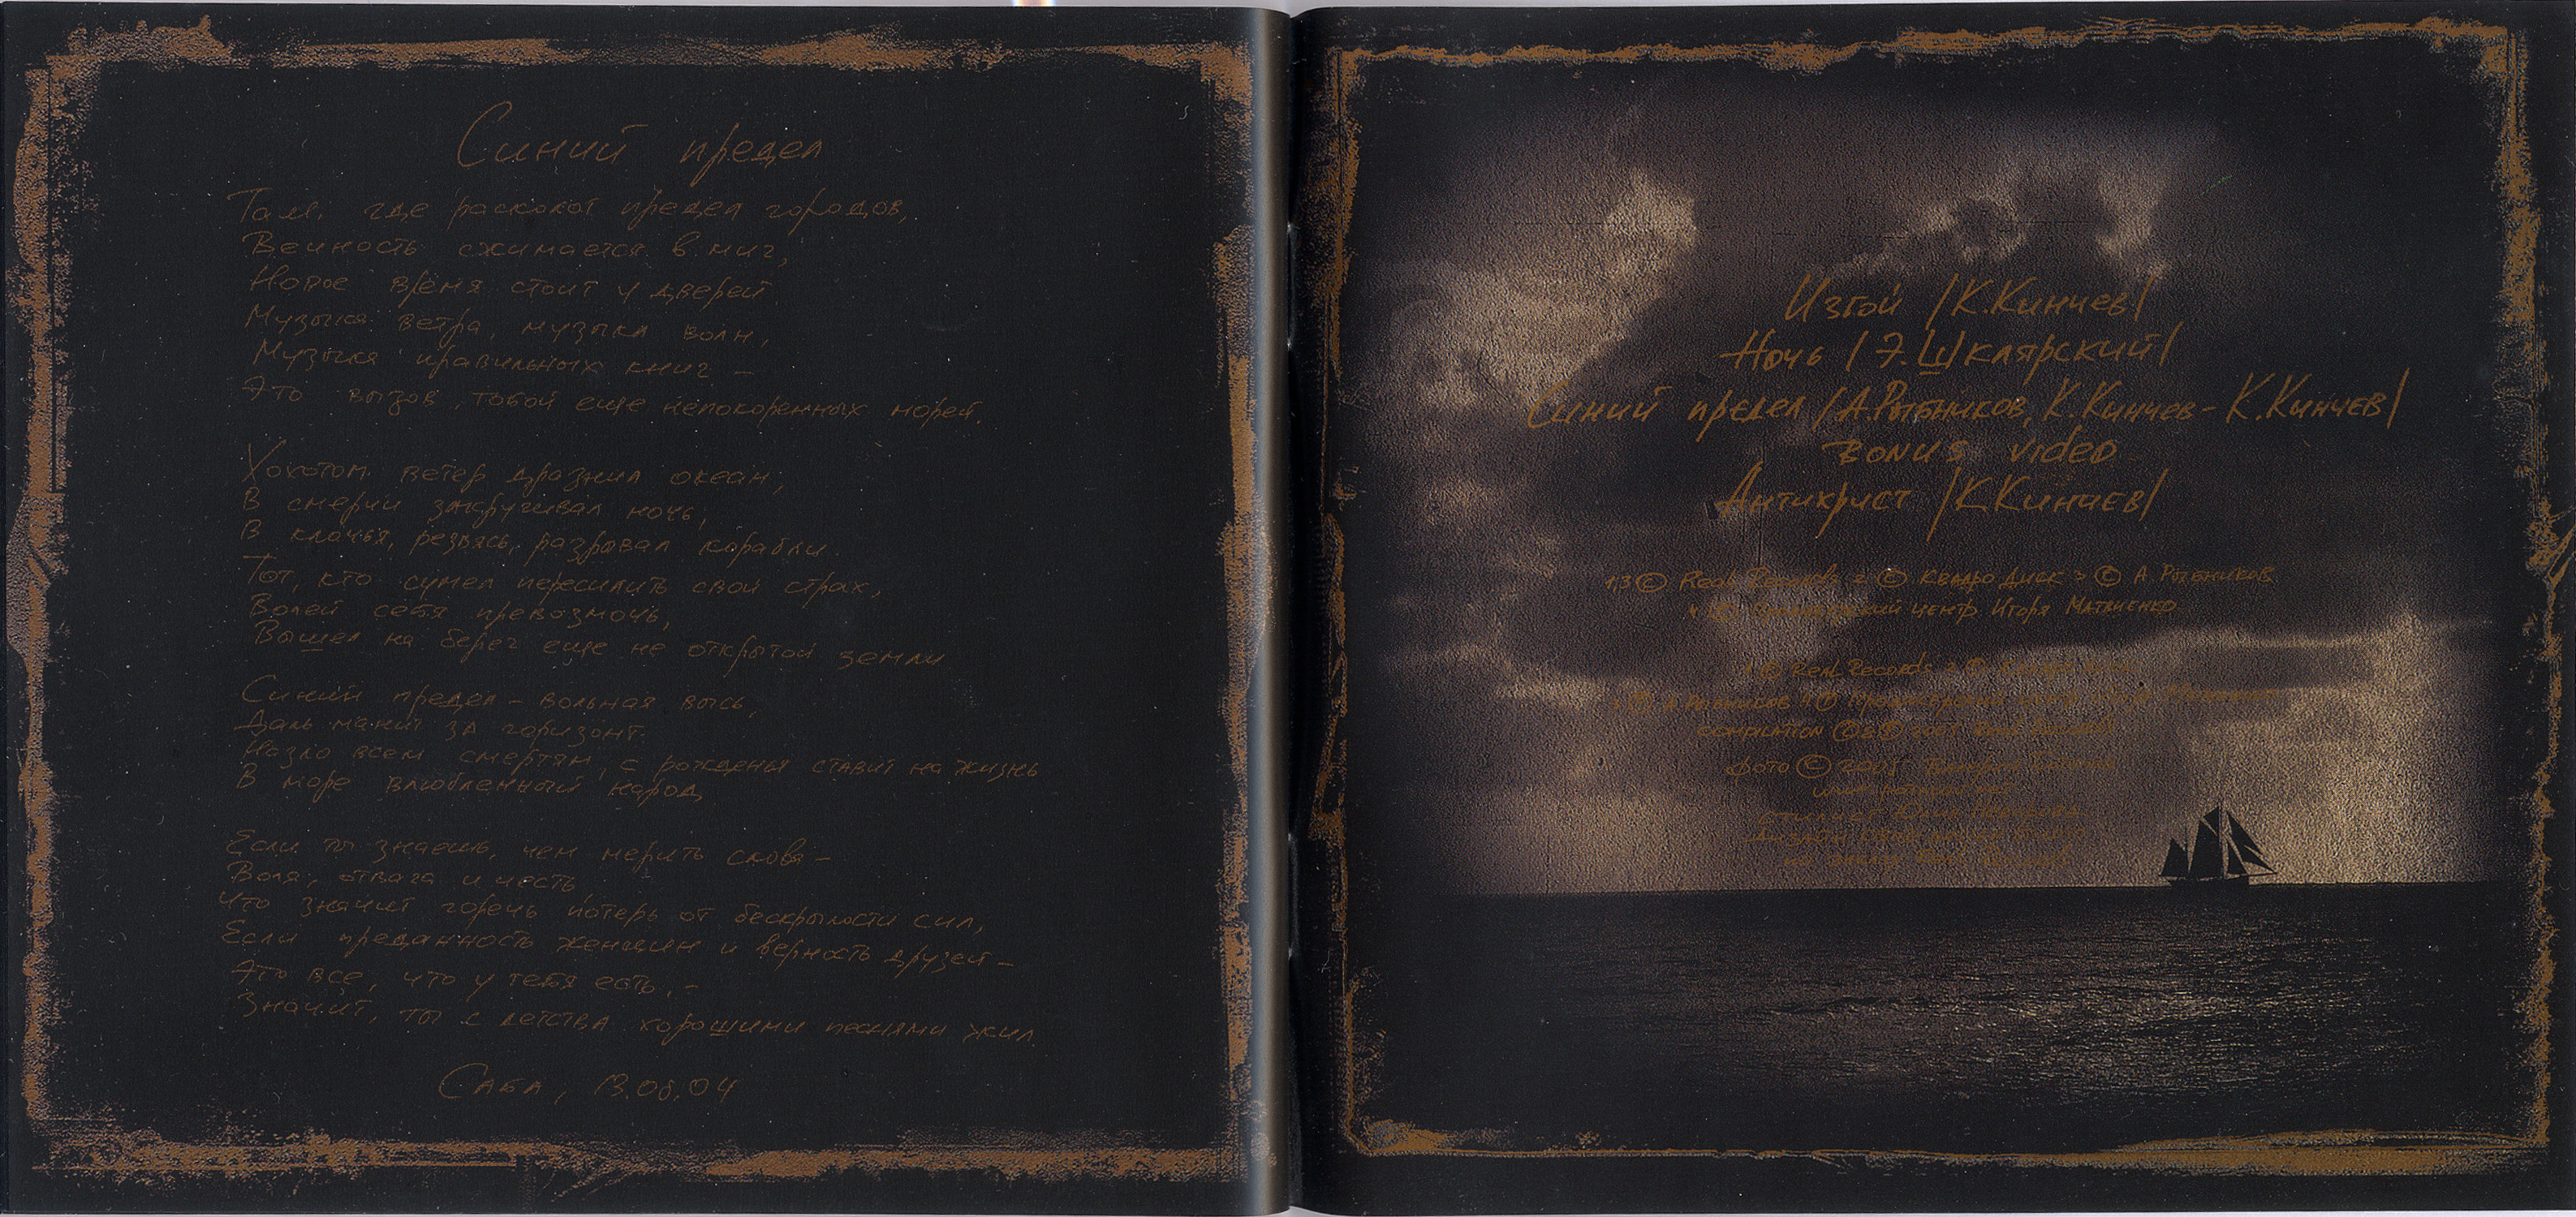 Синий предел
Там, где расколот предел городов,
Вечность сжимается в миг,
Новое время стоит у дверей
Музыка ветра, музыка волн,
Музыка правильных книг –
Это вызов тобой еще непокоренных морей.
Хохотом ветер дразнил океан,
В смерчи закручивал ночь,
В клочья, резвясь, разрывал корабли.
Тот, кто сумел пересилить свой страх,
Волей себя превозмочь,
Вышел на берег еще не открытой земли
Синий предел – вольная высь,
Даль манит за горизонт.
Назло всем смертям, с рожденья ставит на жизнь
В море влюбленный народ
Если ты знаешь, чем мерить слова –
Воля, отвага и честь
Что значит горечь потерь от бескрылости сил,
Если преданность женщин и верность друзей –
Это все, что у тебя есть, –
Значит, ты с детства хорошими песнями жил
Саба, 13.08.04
Изгой /К.Кинчев/
Ночь /Э.Шклярский/
Синий предел /А.Рыбников, К.Кинчев – К.Кинчев/
Bonus video
Антихрист /К.Кинчев/
1,3 © Real Records 2 © Квадро Диск 3 © А. Рыбников
центр Игоря Матвиенко
Real Records 2
А. Рыбников 4 ℗
compilation © & ℗ 2005 Real Records
фото © 2005
стилист